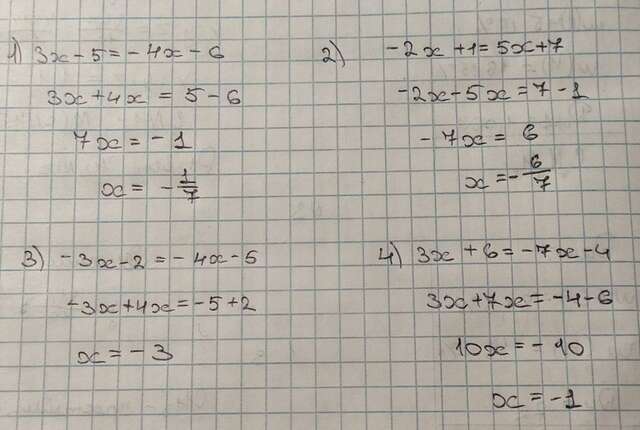 1) 3x - 5 = - 4x - 6
3x + 4x = 5 - 6
7x = - 1
x = - 1/7
2) - 2x + 1 = 5x + 7
- 2x - 5x = 7 - 1
- 7x = 6
x = - 6/7
3) - 3x - 2 = - 4x - 5
- 3x + 4x = - 5 + 2
x = - 3
4) 3x + 6 = - 7x - 4
3x + 7x = - 4 - 6
10x = - 10
x = - 1